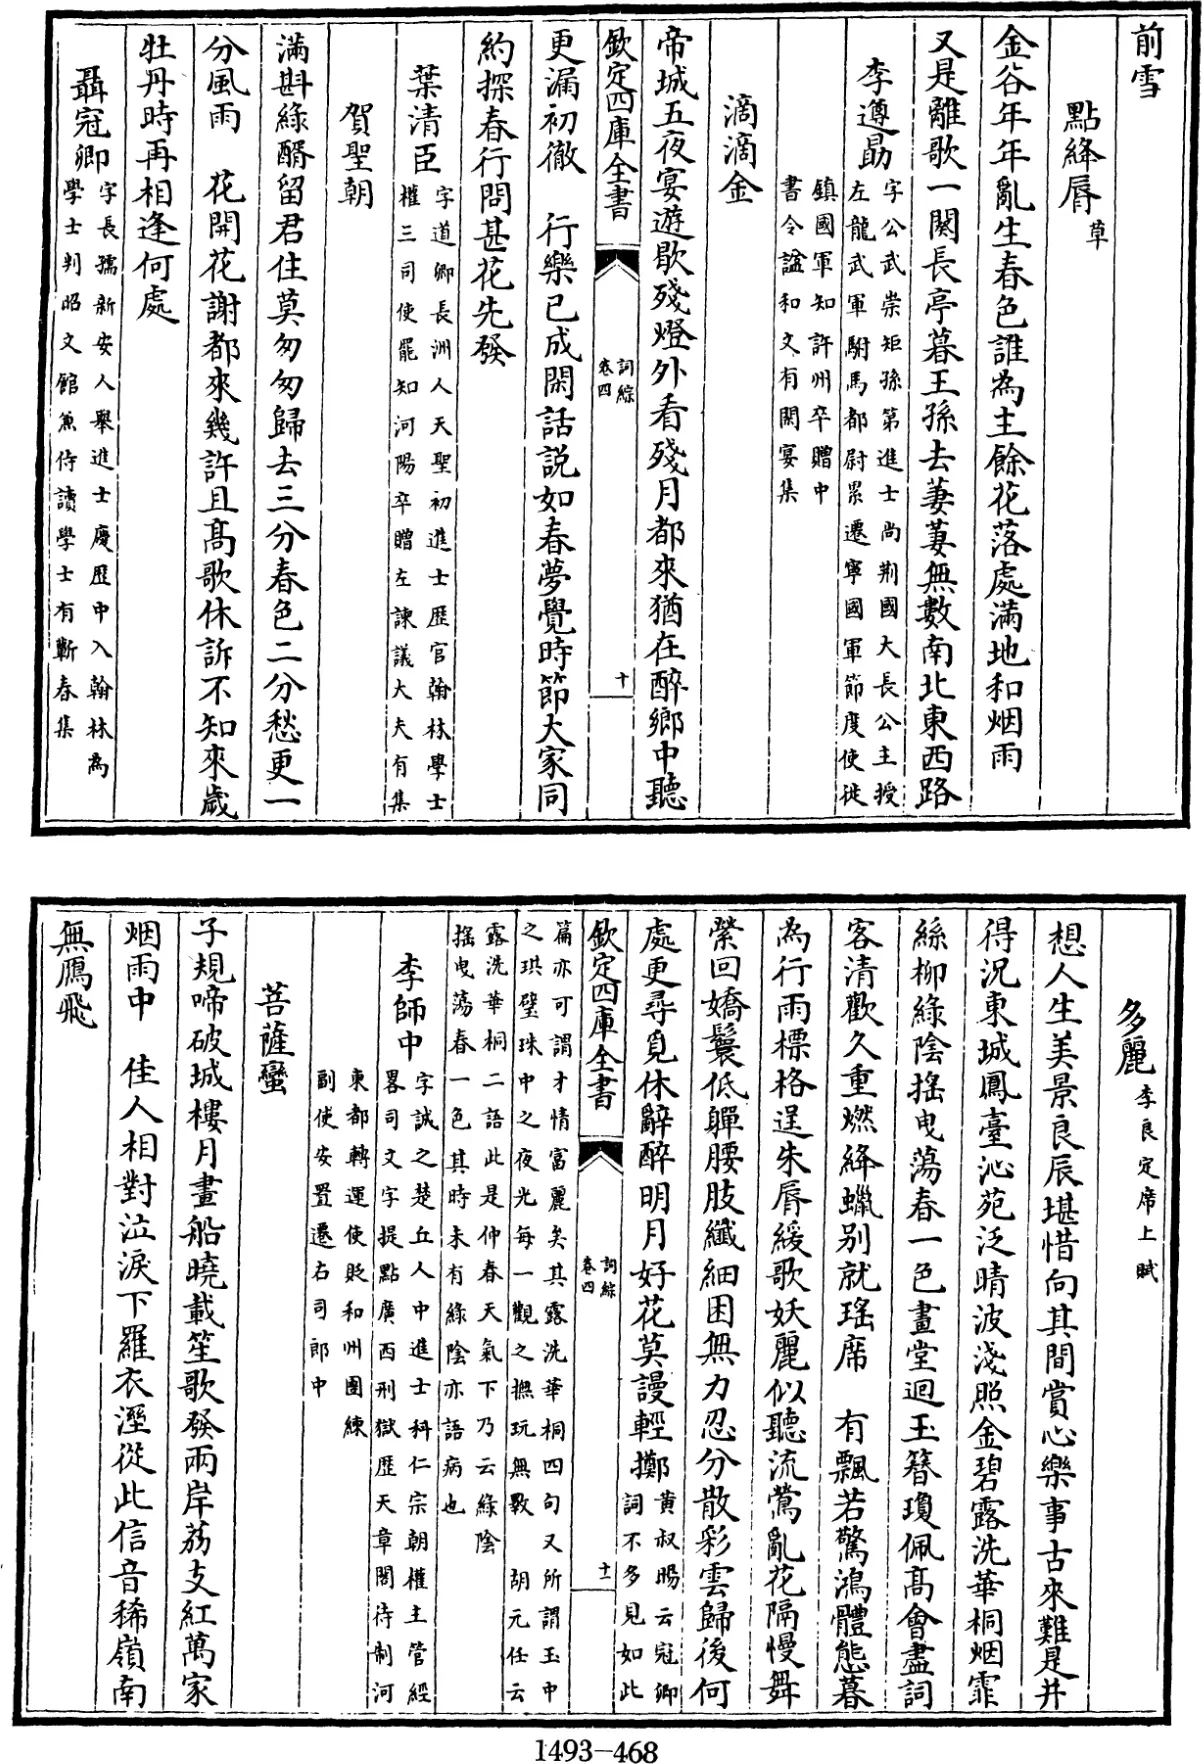 前雪
點絳脣草
金谷年年亂生春色誰為主餘花落處滿地和烟雨
又是離歌一闋長亭暮王孫去萋萋無數南北東西路
李遵勗字公武崇矩孫第進士尚荆國大長公主授
左龍武軍駙馬都尉累遷寧國軍節度使徙
鎮國軍知許州卒贈中
書令諡和文有閒宴集
滴滴金
帝城五夜宴遊歇殘燈外看殘月都來猶在醉鄉中聽
欽定四庫全書
詞綜
卷四
十
更漏初徹　行樂已成閑話説如春夢覺時節大家同
約探春行問甚花先發
葉清臣字道卿長洲人天聖初進士歷官翰林學士
權三司使罷知河陽卒贈左諫議大夫有集
賀聖朝
滿斟綠醑留君住莫匆匆歸去三分春色二分愁更一
分風雨　花開花謝都來幾許且髙歌休訴不知來歲
牡丹時再相逢何處
聶冠卿字長孺新安人舉進士慶歷中入翰林為
學士判昭文館兼侍讀學士有蘄春集
多麗李良定席上賦
想人生美景良辰堪惜向其間賞心樂事古來難是并
得況東城鳳臺沁苑泛晴波淺照金碧露洗華桐烟霏
絲柳綠陰揺曳蕩春一色畫堂迥玉簪瓊佩髙會盡詞
客清歡久重燃絳蠟别就瑤席　有飄若驚鴻體態暮
為行雨標格逞朱脣緩歌妖麗似聽流鶯亂花隔慢舞
縈回嬌鬟低嚲腰肢纖細困無力忍分散彩雲歸後何
處更尋覓休辭醉明月好花莫謾輕擲黄叔暘云冠卿
詞不多見如此
欽定四庫全書
詞綜
卷四
十一
篇亦可謂才情富麗矣其露洗華桐四句又所謂玉中
之珙璧珠中之夜光每一觀之撫玩無斁　胡元任云
露洗華桐二語此是仲春天氣下乃云綠陰
揺曳蕩春一色其時未有綠陰亦語病也
李師中字誠之楚丘人中進士科仁宗朝權主管經
畧司文字提點廣西刑獄歷天章閣待制河
東都轉運使貶和州團練
副使安置遷右司郎中
菩薩蠻
子規啼破城樓月畫船曉載笙歌發兩岸荔支紅萬家
烟雨中　佳人相對泣淚下羅衣溼從此信音稀嶺南
無鴈飛
1493-468